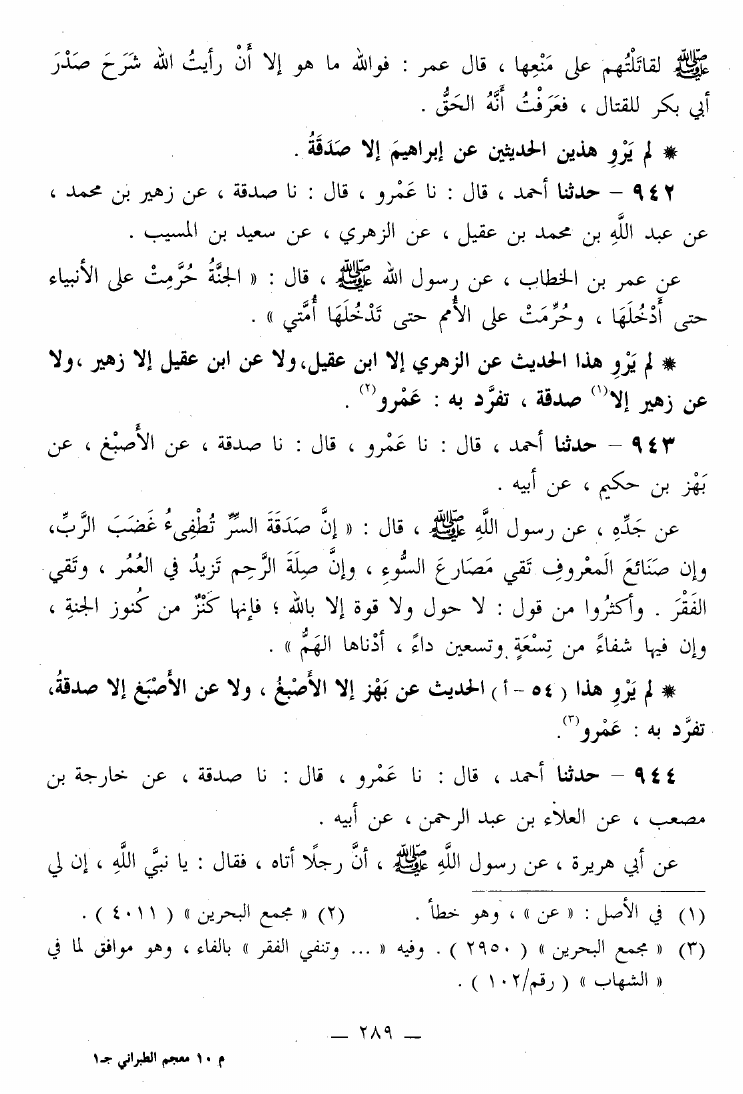 ﷺ لقاتَلْتُهم على مَنْعِها ، قال عمر : فوالله ما هو إلا أَنْ رأيتُ الله شَرَحَ صَدْرَ
أبي بكر للقتال ، فعَرَفْتُ أَنَّهُ الحَقُّ .
* لم يَرْوِ هذين الحديثين عن إبراهيمَ إلا صَدَقَةُ .
٩٤٢ – حدثنا أحمد ، قال : نا عَمْرو ، قال : نا صدقة ، عن زهير بن محمد ،
عن عبد اللَّهِ بن محمد بن عقيل ، عن الزهري ، عن سعيد بن المسيب .
عن عمر بن الخطاب ، عن رسول الله ﷺ ، قال : « الجنَّةُ حُرَّمِتْ على الأنبياء
حتى أَدْخُلَهَا ، وحُرِّمَتْ على الأُمم حتى تَدْخُلَهَا أُمَّتي » .
* لم يَرْوِ هذا الحديث عن الزهري إلا ابن عقيل، ولا عن ابن عقيل إلا زهير ، ولا
عن زهير إلا(١) صدقة ، تفرَّد به : عَمْرو(٢) .
٩٤٣ – حدثنا أحمد ، قال : نا عَمْرو ، قال : نا صدقة ، عن الأَصبْغ ، عن
بَهْز بن حكيم ، عن أبيه .
عن جَدِّهِ ، عن رسول اللَّهِ ﷺ ، قال : « إنَّ صَدَقَةَ السرِّ تُطْفِىءُ غَضَبَ الرَّبِّ،
وإن صَنَائعَ المَعْروفِ تَقي مَصَارعَ السُّوءِ ، وإنَّ صِلَةَ الرَّحِم تَزيدُ في العُمُر ، وتَقي
الفَقْرَ . وأكثرُوا من قول : لا حول ولا قوة إلا بالله ؛ فإنها كَنْزٌ من كُنوز الجنةِ ،
وإن فيها شفاءً من تِسْعَةٍ وتسعين داءً ، أدْناها الهَمُّ » .
* لم يَرْوِ هذا ( ٥٤ – أ ) الحديث عن بَهْز إلا الأَصْبغُ ، ولا عن الأَصْبَغ إلا صدقةُ،
تفرَّد به : عَمْرو(٣).
٩٤٤ – حدثنا أحمد ، قال : نا عَمْرو ، قال : نا صدقة ، عن خارجة بن
مصعب ، عن العلاء بن عبد الرحمن ، عن أبيه .
عن أبي هريرة ، عن رسول اللَّهِ ﷺ ، أنَّ رجلًا أتاه ، فقال : يا نبيَّ اللَّهِ ، إن لي
(١) في الأصل : « عن » ، وهو خطأ . (٢) « مجمع البحرين » ( ٤٠١١ ) .
(٣) « مجمع البحرين » ( ٢٩٥٠ ) . وفيه « ... وتنفي الفقر » بالفاء ، وهو موافق لما في
« الشهاب » ( رقم/١٠٢ ) .
— ٢٨٩ —
م ١٠ معجم الطبراني جـ١